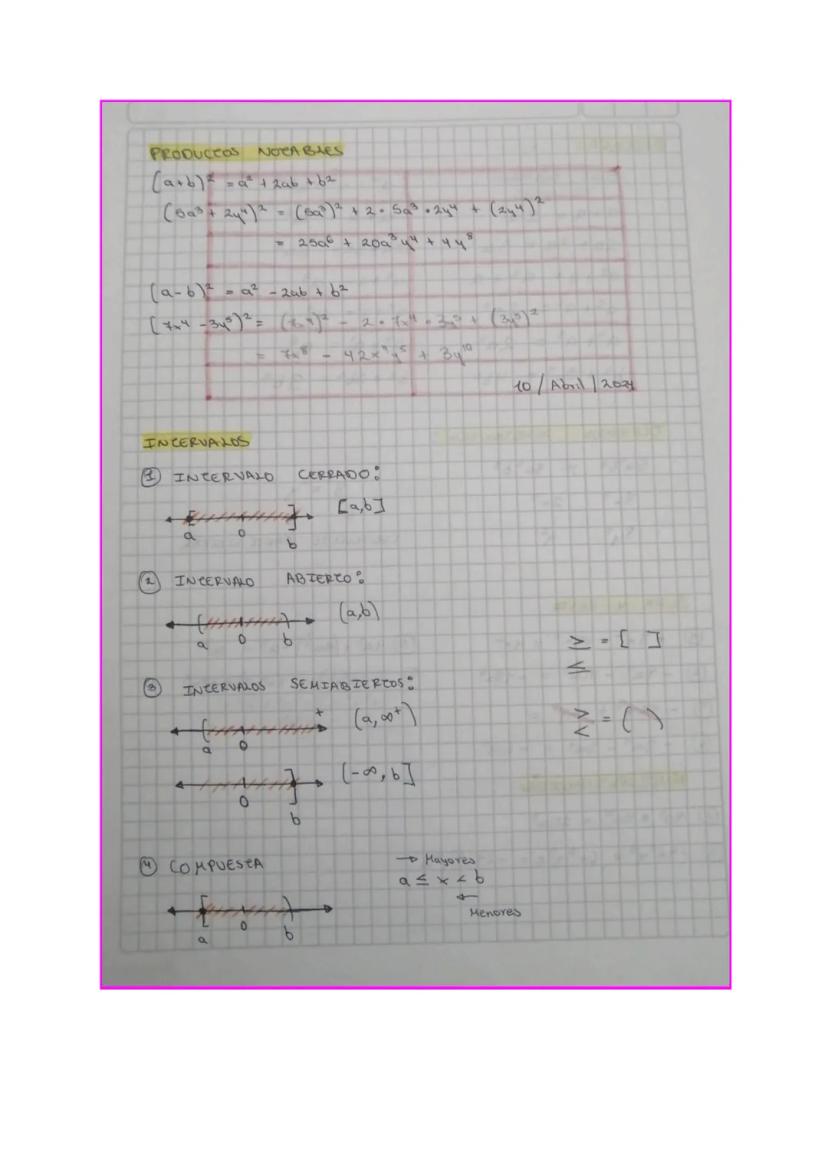 PRODUCTOS NOTABLES
(a+b)² = a² + 2ab + b²
(5a³ + 2y⁴)² = (5a³)² + 2 · 5a³ · 2y⁴ + (2y⁴)²
= 25a⁶ + 20a³y⁴ + 4y⁸
(a-b)² = a² - 2ab + b²
(7x⁴ - 3y⁵)² = (7x⁴)² - 2 · 7x⁴ · 3y⁵ + (3y⁵)²
= 7x⁸ - 42x⁴y⁵ + 3y¹⁰
10/Abril/2021
INTERVALOS
① INTERVALO CERRADO:
[a,b]
a 0 b
② INTERVALO ABIERTO:
(a,b)
a 0 b
≥ = [ ]
≤
③ INTERVALOS SEMIABIERTOS:
+ (a,∞⁺)
a 0
> = ( )
<
(-∞, b]
0 b
④ COMPUESTA
→ Mayores
a ≤ x < b
←
Menores
a 0 b